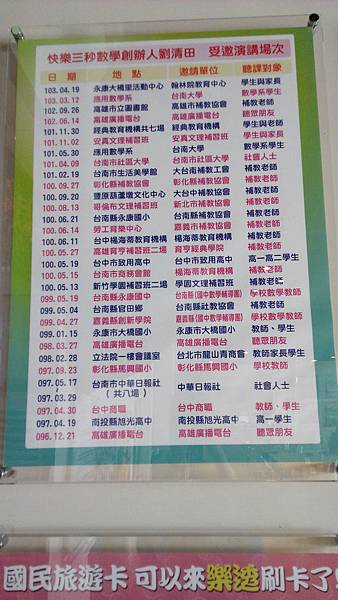 快樂三秒數學創辦人劉清田 受邀演講場次
日期 地點 邀請單位 聽課對象
103.04.19 永康大橋里活動中心 翰林院教育中心 學生與家長
103.03.12 應用數學系 台南大學 數學系學生
102.09.26 高雄市立圖書館 高雄市補教協會 補教老師
102.06.14 高雄廣播電台 高雄廣播電台 聽眾朋友
101.11.30 經典教育機構共七場 經典教育機構 學生與老師
101.11.02 安真文理補習班 安真文理補習班 學生與家長
101.05.30 應用數學系 台南大學 數學系學生
101.04.09 台南市社區大學 台南市社區大學 社會人士
101.02.19 台南市生活美學館 大台南補教工會 補教老師
100.09.27 彰化縣補教協會 彰化縣補教協會 補教老師
100.09.20 豐原葫蘆墩文化中心 大台中補教協會 補教老師
100.08.13 哥倫布文理補習班 新北市補教協會 補教老師
100.06.21 台南縣永康國小 台南縣補教協會 補教老師
100.06.14 勞工育樂中心 嘉義市補教協會 補教老師
100.06.11 台中楊海蒂教育機構 楊海蒂教育機構 補教老師
100.05.27 高雄育亨補習班二場 育亨經典學院 補教老師
100.05.19 台中市致用高中 台中市致用高中 高一高二學生
100.05.15 台南市商務會館 楊海蒂教育機構 補教老師
100.05.13 新竹學園補習班二場 學園文理補習班 補教老師
099.05.19 台南縣永康國中 台南縣(國中數學輔導團) 學校數學教師
099.05.04 台南縣官田鄉 台南縣社教協會 補教老師
099.04.27 嘉義縣創新學院 嘉義縣(國中數學輔導團) 學校數學教師
099.01.15 永康市大橋國小 永康市大橋國小 教師、學生
098.03.27 高雄廣播電台 高雄廣播電台 聽眾朋友
098.02.28 立法院一樓會議室 台北市龍山青商會 教師家長學生
097.09.23 彰化縣馬興國小 彰化縣馬興國小 學校教師
097.05.17 台南市中華日報社 中華日報社 社會人士
097.03.29 (共八場)
097.04.30 台中商職 台中商職 教師、學生
097.04.19 南投縣旭光高中 南投縣旭光高中 高一學生
096.12.21 高雄廣播電台 高雄廣播電台 聽眾朋友
國民旅遊卡 可以來樂透刷卡了!